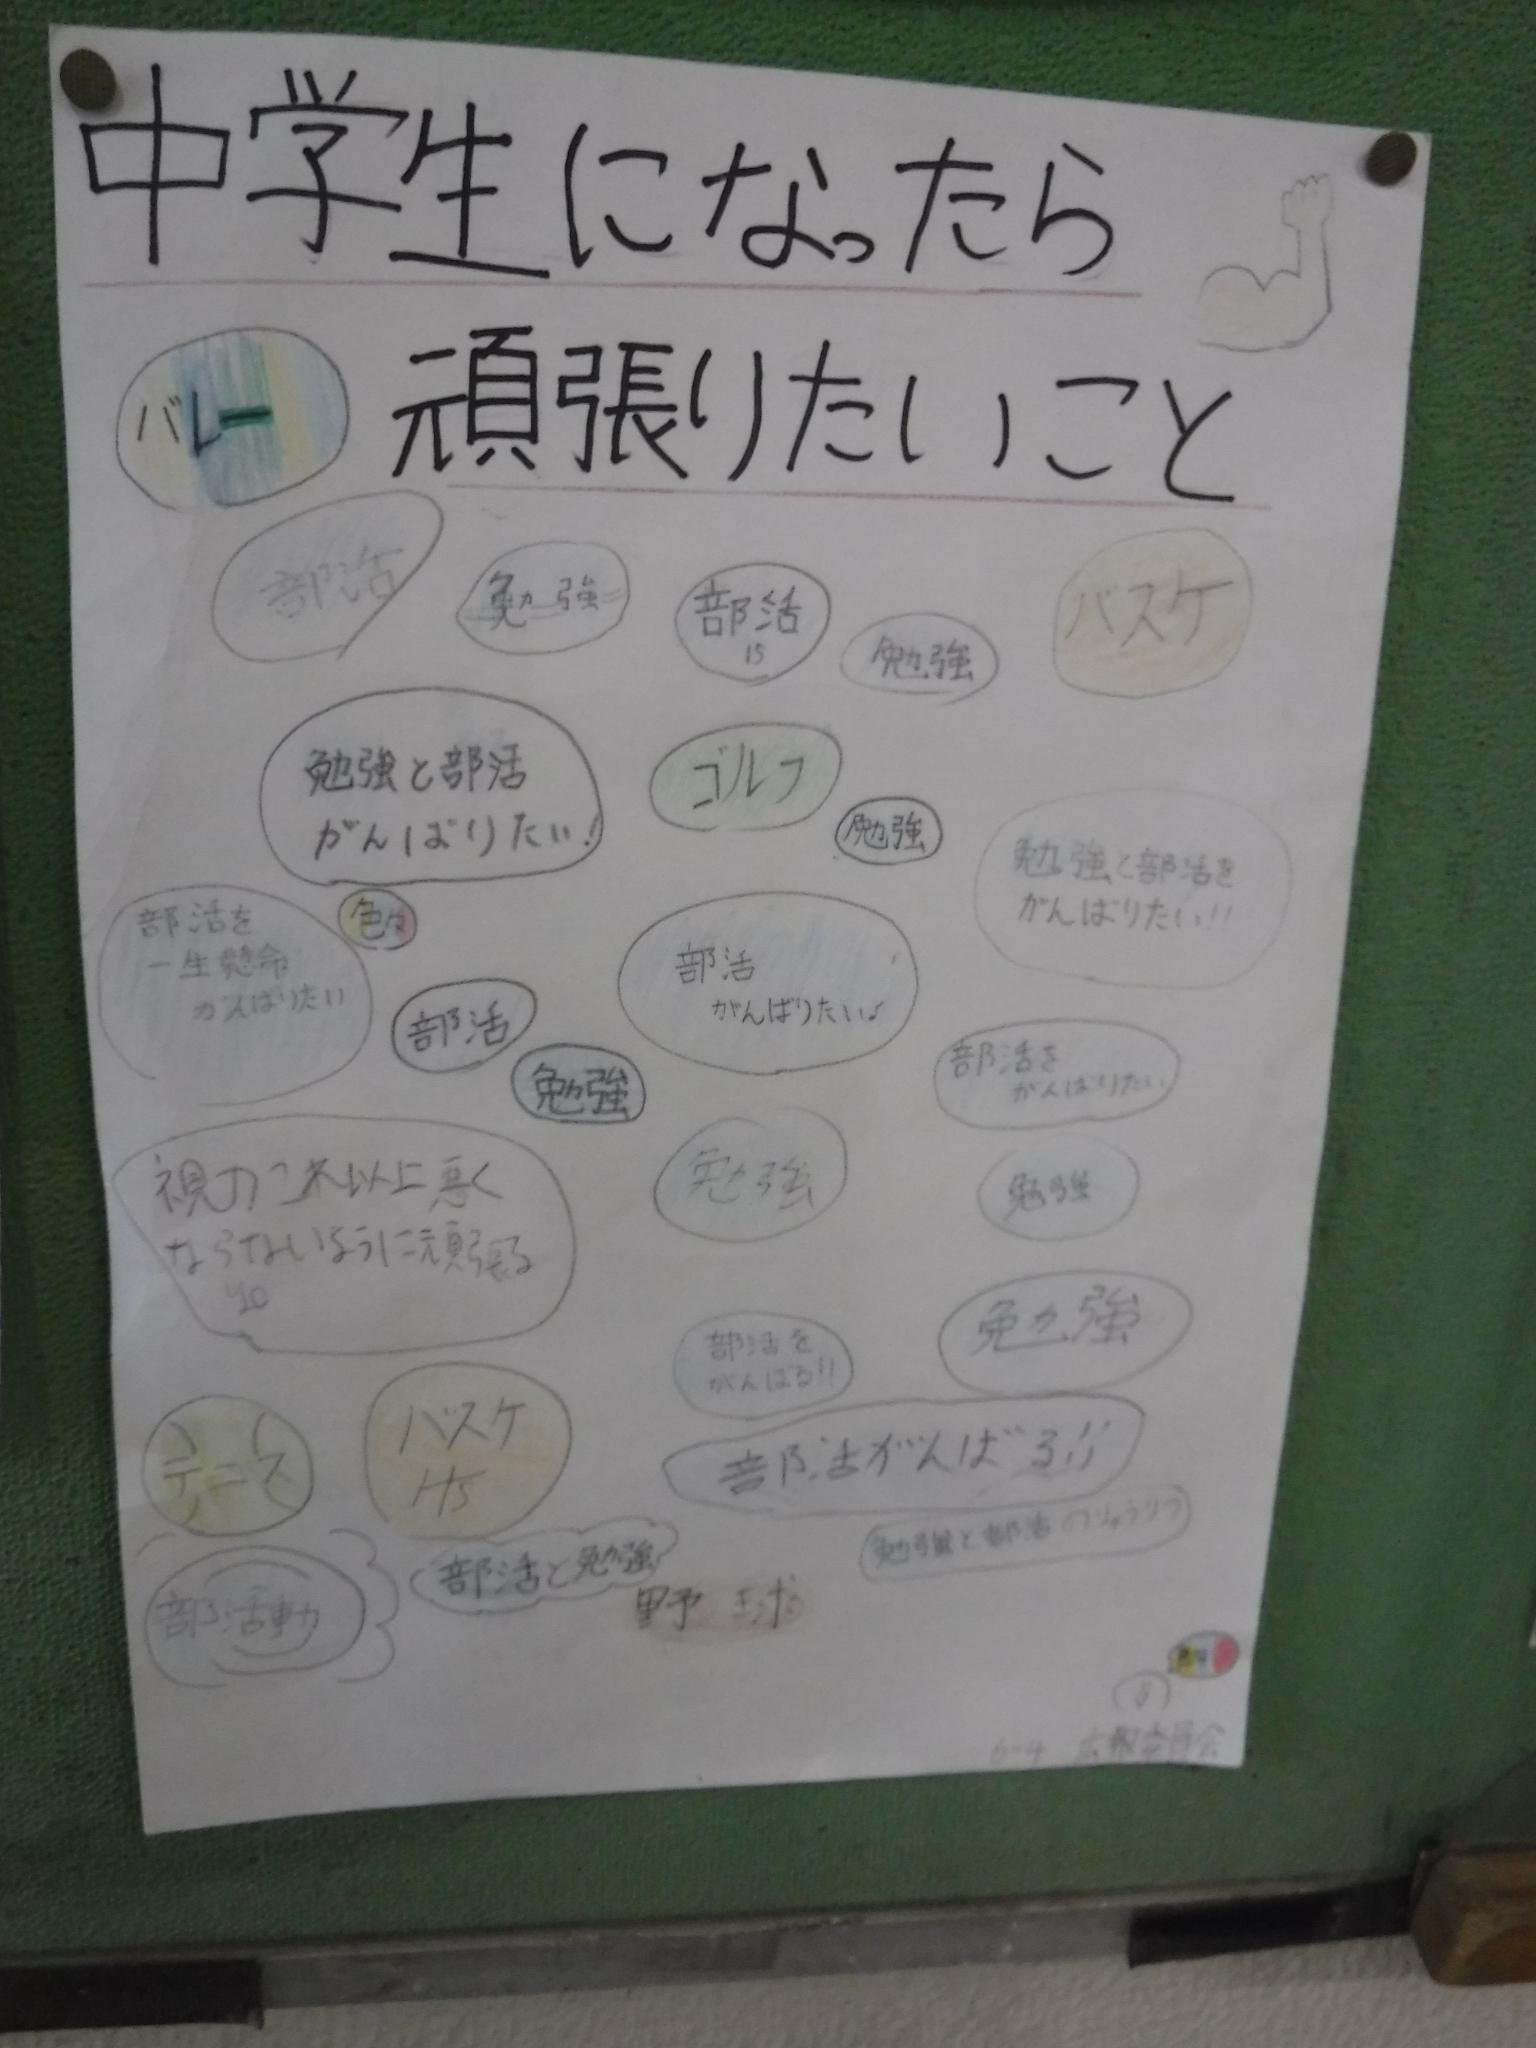 中学生になったら
頑張りたいこと
バレー
部活
勉強
部活
15
勉強
バスケ
勉強と部活
がんばりたい!
ゴルフ
勉強
勉強と部活を
がんばりたい!!
色々
部活を
一生懸命
がんばりたい
部活
がんばりたい♪
部活
勉強
部活を
がんばりたい
視力これ以上悪く
ならないように頑張る
勉強
勉強
勉強
部活を
がんばる!!
テニス
バスケ
部活がんばる!!
勉強と部活のりょうりつ
部活と勉強
部活動
野球
6-4 広報委員会